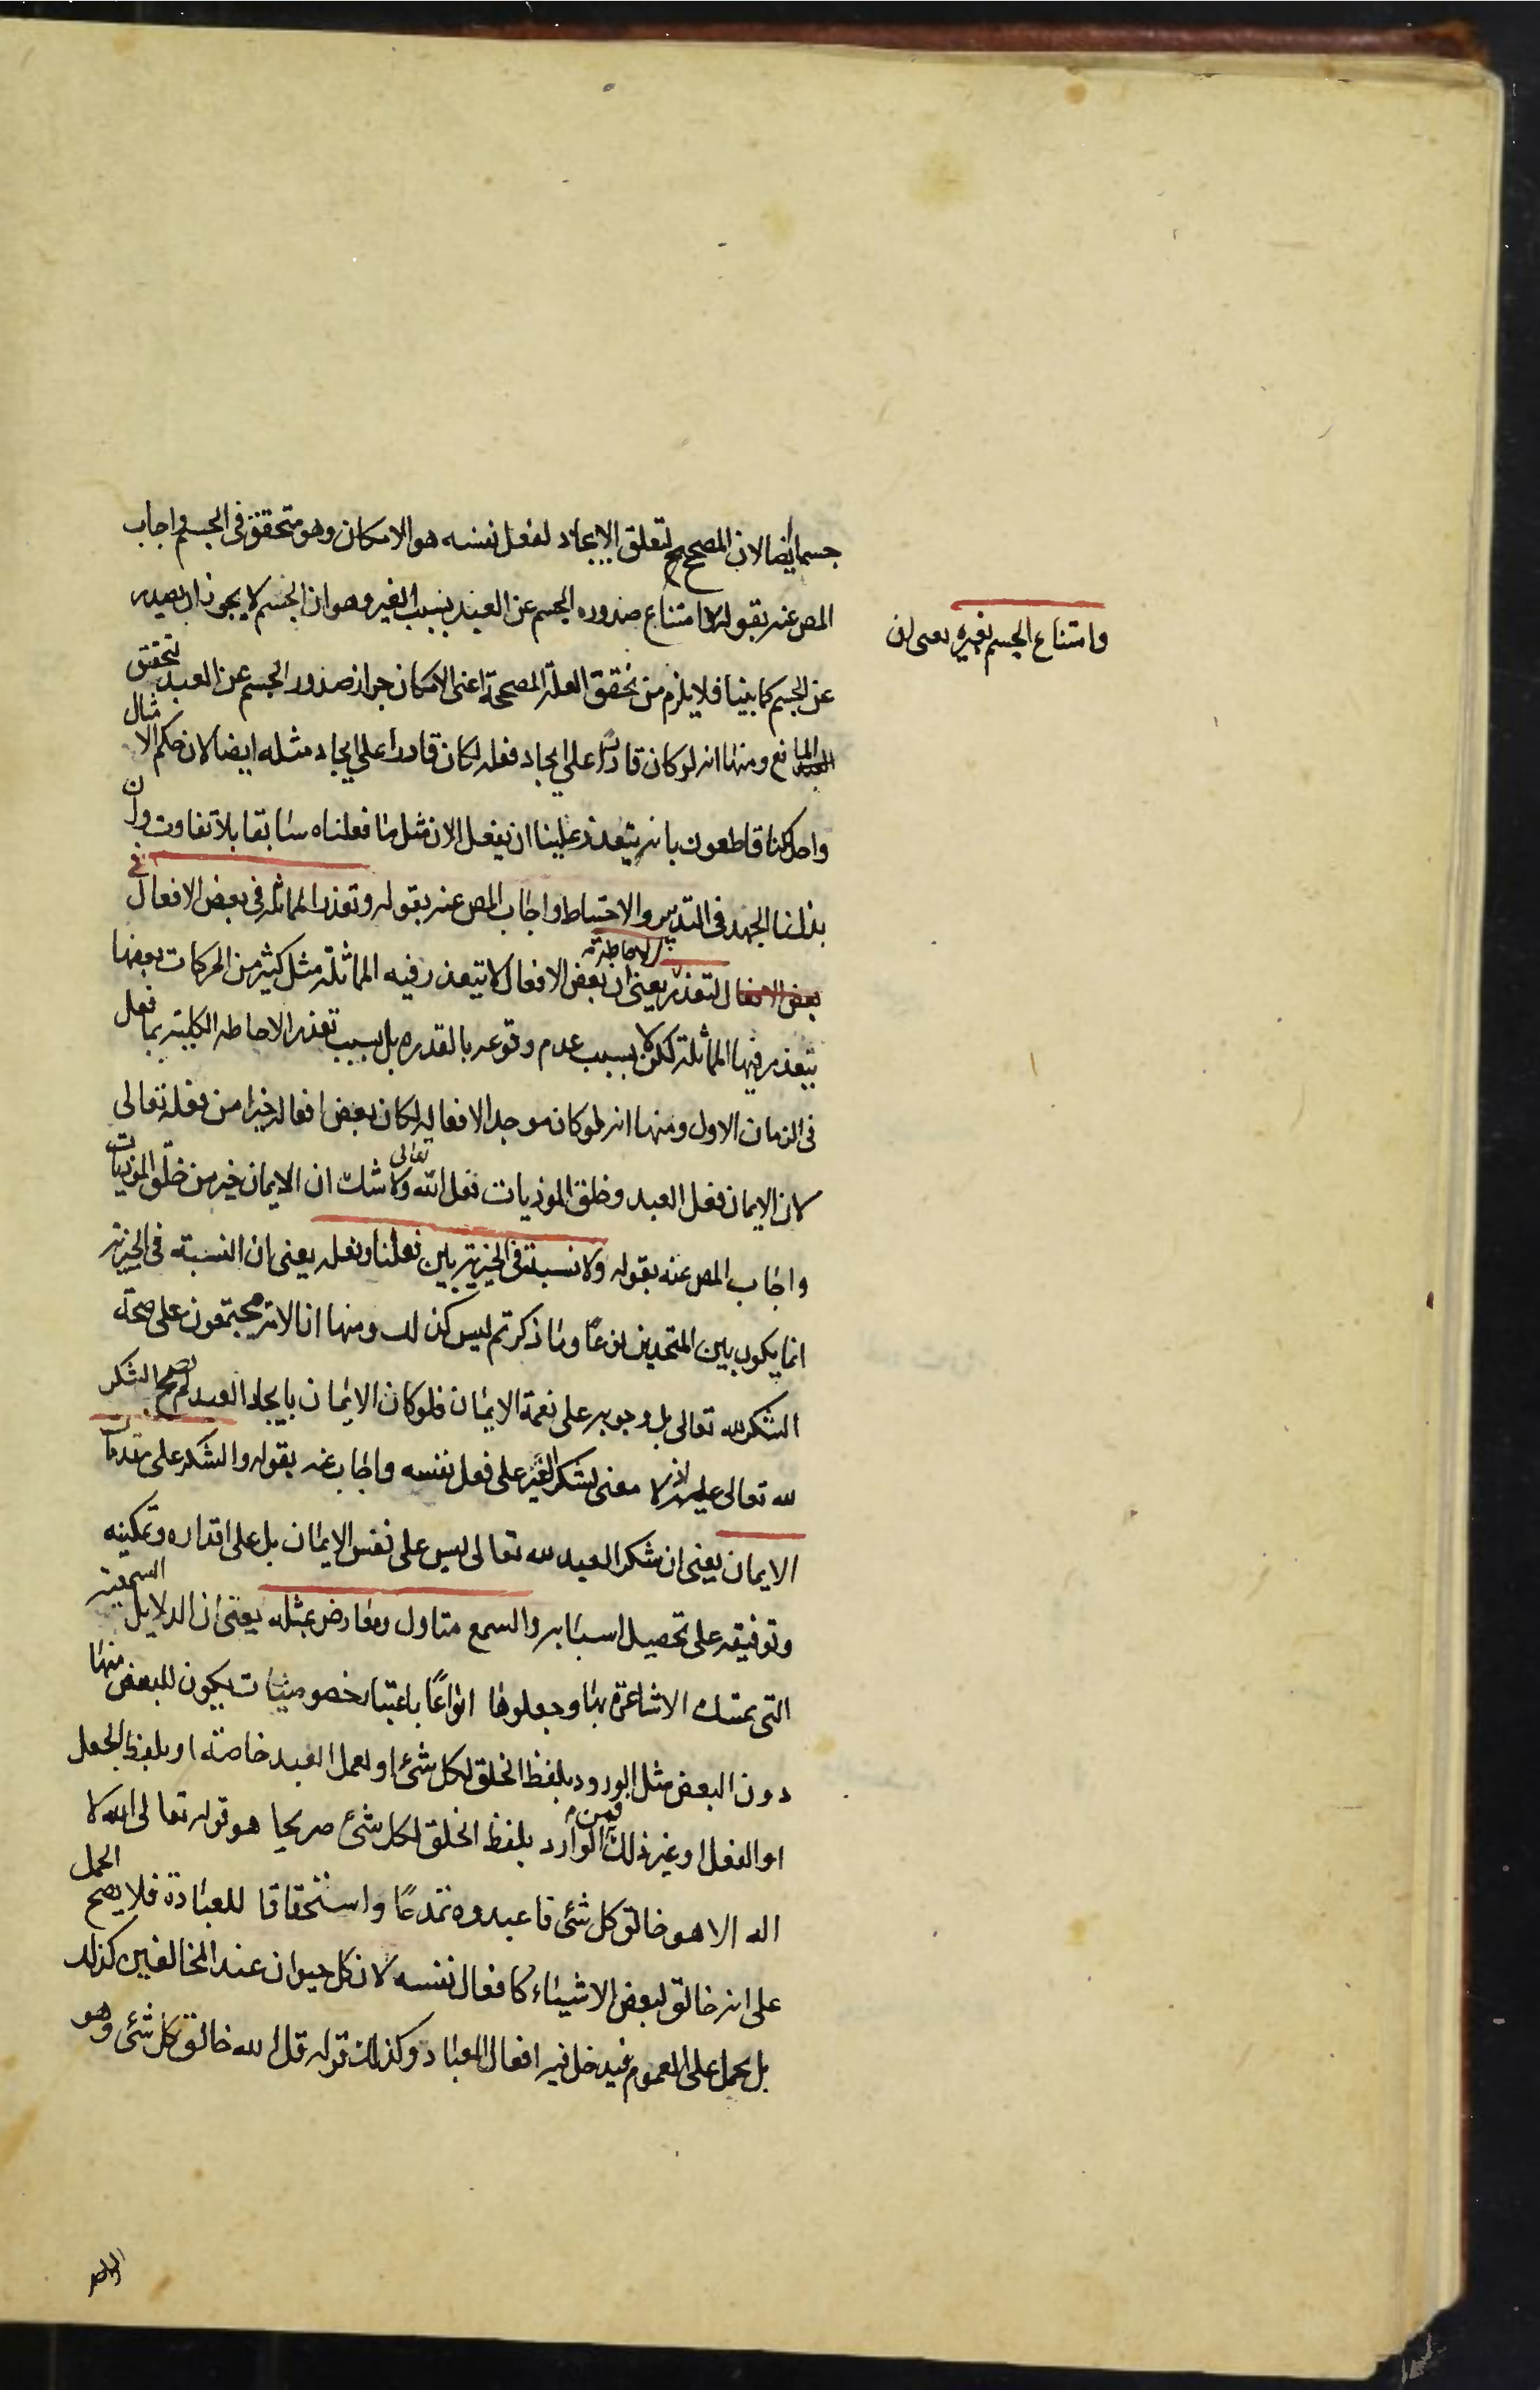 جسما ايضا لان المصحح لتعلق الايجاد لفعل نفسه هو الامكان وهو متحقق فى الجسم واجاب
المص عنه بقوله لامتناع صدور الجسم عن العبد بسبب الغير وهو ان الجسم لا يجوز ان يصدر
وامتناع الجسم لغيره يعنى ان
عن الجسم كما بينا فلا يلزم من تحقق العلة المصححة اعنى الامكان جواز صدور الجسم عن العبد لتحقق
المانع ومنها انه لو كان قادرا على ايجاد فعله لكان قادرا على ايجاد مثله ايضا لان حكم الامثال
واحد لكنا قاطعون بانه يتعذر علينا ان نفعل الان مثل ما فعلناه سابقا بلا تفاوت وان
بذلنا الجهد فى التدبير والاحتياط واجاب المص عنه بقوله وتعذر المماثلة فى بعض الافعال فى
بعض الافعال لتعذر الاحاطة يعنى ان بعض الافعال لا يتعذر فيه المماثلة مثل كثير من الحركات بعضها
يتعذر فيها المماثلة لكن لا بسبب عدم وقوعه بالقدره بل بسبب تعذر الاحاطه الكلية بما فعل
فى الزمان الاول ومنها انه لو كان موجدا لافعاله لكان بعض افعاله خيرا من فعله تعالى
لان الايمان فعل العبد وخلق الموذيات فعل الله تعالى ولا شك ان الايمان خير من خلق الموذيات
واجاب المص عنه بقوله ولا نسبة فى الخيرية بين فعلنا وفعله يعنى ان النسبة فى الخيرية
انما يكون بين المتحدين نوعًا وما ذكرتم ليس كذلك ومنها ان الامة مجتمعون على صحة
الشكر لله تعالى بل وجوبه على نعمة الايمان فلو كان الايمان بايجاد العبد لم يصح الشكر
لله تعالى عليه اذ لا معنى لشكر الغير على فعل نفسه واجاب عنه بقوله والشكر على مقدمات
الايمان يعنى ان شكر العبد لله تعالى ليس على نفس الايمان بل على اقداره وتمكينه
وتوفيقه على تحصيل اسبابه والسمع متاول ومعارض بمثله يعنى ان الدلايل السمعية
التى تمسك الاشاعرة بها وجعلوها انواعًا باعتبار خصوصيات يكون للبعض منها
دون البعض مثل الورود بلفظ الخلق لكل شئ او لعمل العبد خاصة او بلفظ الجعل
او الفعل او غير ذلك فمن الوارد بلفظ الخلق لكل شئ صريحا هو قوله تعالى الله لا
اله الا هو خالق كل شئ فاعبدوه تمدحًا واستحقاقا للعبادة فلا يصح الحمل
على انه خالق لبعض الاشياء كافعال نفسه لان كل حيوان عند المخالفين كذلك
بل يحمل على العموم فيدخل فيه افعال العباد وكذلك قوله قل الله خالق كل شئ وهو